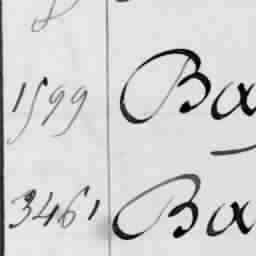 1599 Ba
3461 Ba